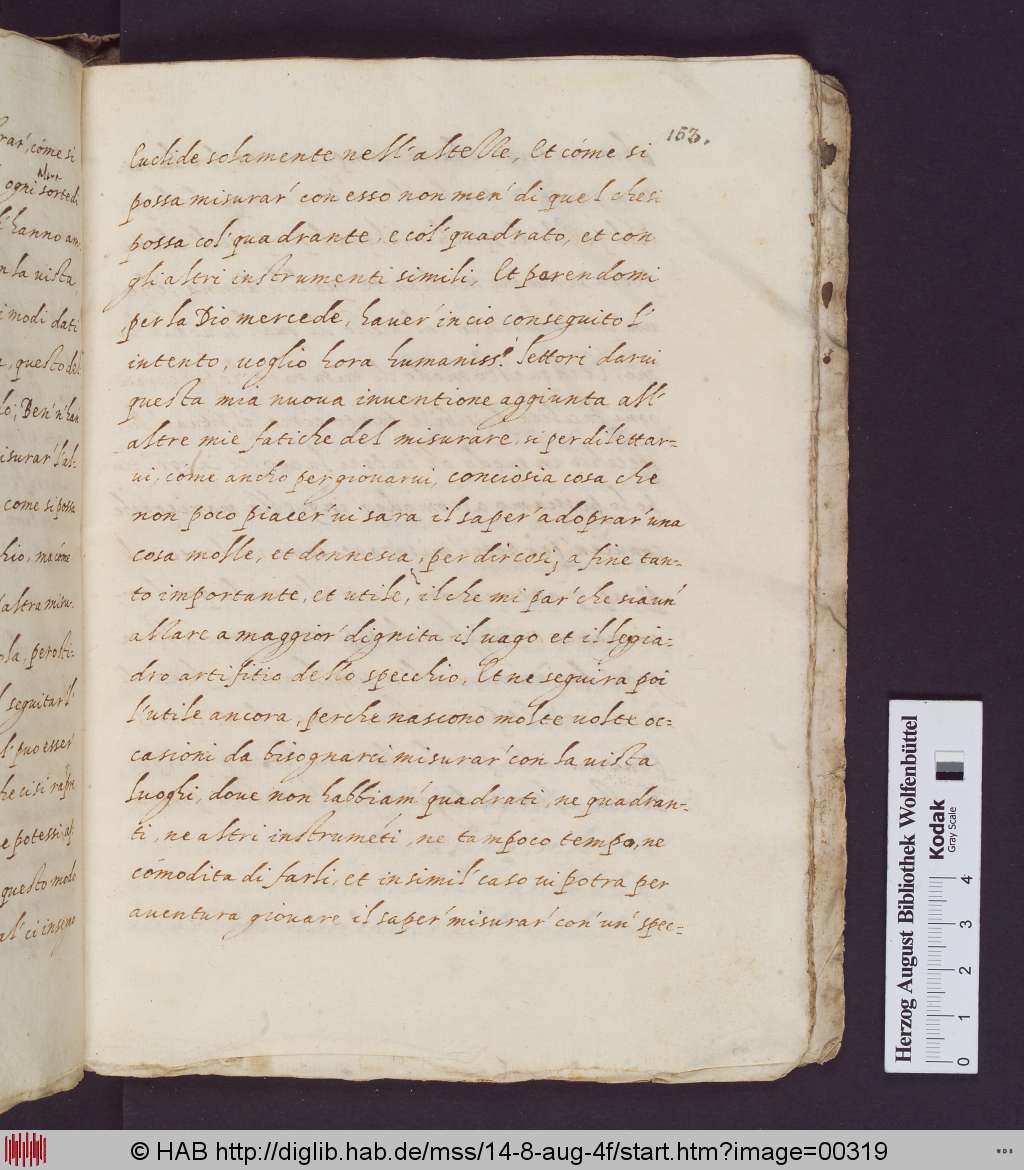 153.
Euclide solamente nell' altelle, Et cóme si
possa misurar' con esso non men' di quel chesi
possa col' quadrante, e col' quadrato, et con
gli altri instrumenti simili, Et parendomi
per la Dio mercede, haver' in cio conseguito l'
intento, uoglio hora humaniss.i lettori darui
questa mia nuoua inuentione aggiunta all'
altre mie fatiche del misurare, si per dilettar=
ui, cóme ancho per giouarui, conciosia cosa che
non poco piacer' ui sara il saper' adoprar' una
cosa molle, et donnesca, per dir cosi, a fine tan=
to importante, et utile, il che mi par' che sia un'
alzare a maggior' dignita il uago et il legia=
dro artifitio dello specchio, Et ne seguira poi
l'utile ancora, perche nascono molte uolte oc=
casioni da bisognarci misurar' con la uista
luoghi, doue non habbiam' quadrati, ne quadran=
ti, ne altri instruméti, ne tampoco tempo, ne
cómodita di farli, et in simil' caso ui potra per
auentura giouare il saper' misurar' con' un' spec=
rar', cóme si
ogni altra sorte di
hanno an=
n la uista,
i modi dati
questo del
lo; Ben' n' han
misurar' l'al=
come si possa
hio, ma cóme
altra misu=
ola, pero sti=
l seguitar l'
l' puo esser
he ci si rapre
e potessi, af
questo modo
al' ci insegno
Herzog August Bibliothek Wolfenbüttel
Kodak
Gray Scale
0 1 2 3 4
© HAB http://diglib.hab.de/mss/14-8-aug-4f/start.htm?image=00319